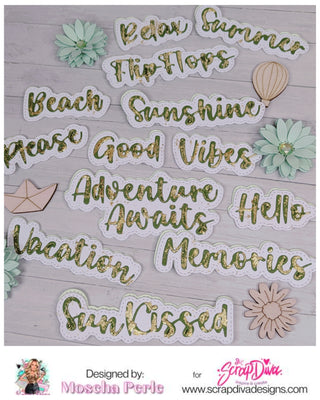 Relax
Summer
Flip Flops
Beach
Sunshine
Please
Good
Vibes
Adventure
Awaits
Hello
Vacation
Memories
Sun Kissed
Designed by:
Moscha Perle
for
the
ScrapDiva
www.scrapdivadesigns.com